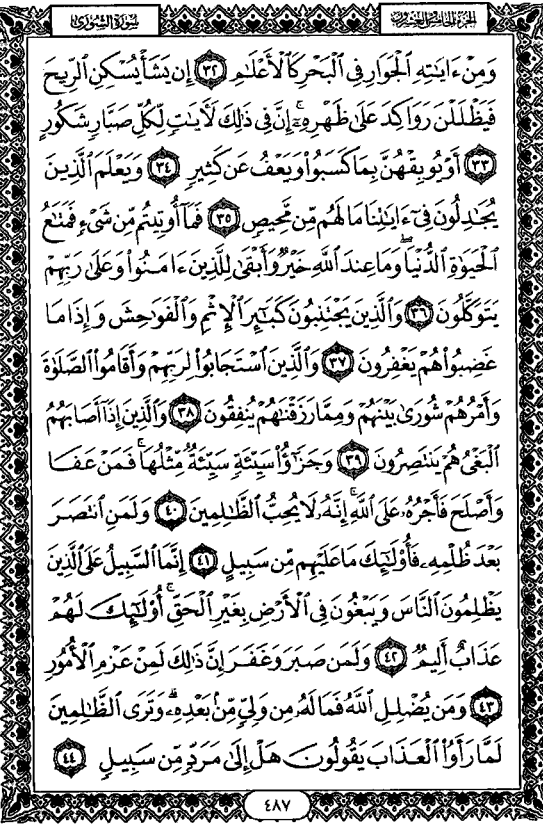 الجزء الخامس والعشرون
سورة الشورى
وَمِنْ ءَايَـٰتِهِ ٱلْجَوَارِ فِى ٱلْبَحْرِ كَٱلْأَعْلَـٰمِ ٣٢ إِن يَشَأْ يُسْكِنِ ٱلرِّيحَ
فَيَظْلَلْنَ رَوَاكِدَ عَلَىٰ ظَهْرِهِۦٓ ۚ إِنَّ فِى ذَٰلِكَ لَـَٔايَـٰتٍ لِّكُلِّ صَبَّارٍ شَكُورٍ
٣٣ أَوْ يُوبِقْهُنَّ بِمَا كَسَبُوا۟ وَيَعْفُ عَن كَثِيرٍ ٣٤ وَيَعْلَمَ ٱلَّذِينَ
يُجَـٰدِلُونَ فِىٓ ءَايَـٰتِنَا مَا لَهُم مِّن مَّحِيصٍ ٣٥ فَمَآ أُوتِيتُم مِّن شَىْءٍ فَمَتَـٰعُ
ٱلْحَيَوٰةِ ٱلدُّنْيَا ۖ وَمَا عِندَ ٱللَّهِ خَيْرٌ وَأَبْقَىٰ لِلَّذِينَ ءَامَنُوا۟ وَعَلَىٰ رَبِّهِمْ
يَتَوَكَّلُونَ ٣٦ وَٱلَّذِينَ يَجْتَنِبُونَ كَبَـٰٓئِرَ ٱلْإِثْمِ وَٱلْفَوَٰحِشَ وَإِذَا مَا
غَضِبُوا۟ هُمْ يَغْفِرُونَ ٣٧ وَٱلَّذِينَ ٱسْتَجَابُوا۟ لِرَبِّهِمْ وَأَقَامُوا۟ ٱلصَّلَوٰةَ
وَأَمْرُهُمْ شُورَىٰ بَيْنَهُمْ وَمِمَّا رَزَقْنَـٰهُمْ يُنفِقُونَ ٣٨ وَٱلَّذِينَ إِذَآ أَصَابَهُمُ
ٱلْبَغْىُ هُمْ يَنتَصِرُونَ ٣٩ وَجَزَٰٓؤُا۟ سَيِّئَةٍ سَيِّئَةٌ مِّثْلُهَا ۖ فَمَنْ عَفَا
وَأَصْلَحَ فَأَجْرُهُۥ عَلَى ٱللَّهِ ۚ إِنَّهُۥ لَا يُحِبُّ ٱلظَّـٰلِمِينَ ٤٠ وَلَمَنِ ٱنتَصَرَ
بَعْدَ ظُلْمِهِۦ فَأُو۟لَـٰٓئِكَ مَا عَلَيْهِم مِّن سَبِيلٍ ٤١ إِنَّمَا ٱلسَّبِيلُ عَلَى ٱلَّذِينَ
يَظْلِمُونَ ٱلنَّاسَ وَيَبْغُونَ فِى ٱلْأَرْضِ بِغَيْرِ ٱلْحَقِّ ۚ أُو۟لَـٰٓئِكَ لَهُمْ
عَذَابٌ أَلِيمٌ ٤٢ وَلَمَن صَبَرَ وَغَفَرَ إِنَّ ذَٰلِكَ لَمِنْ عَزْمِ ٱلْأُمُورِ
٤٣ وَمَن يُضْلِلِ ٱللَّهُ فَمَا لَهُۥ مِن وَلِىٍّ مِّنۢ بَعْدِهِۦ ۗ وَتَرَى ٱلظَّـٰلِمِينَ
لَمَّا رَأَوُا۟ ٱلْعَذَابَ يَقُولُونَ هَلْ إِلَىٰ مَرَدٍّ مِّن سَبِيلٍ ٤٤
٤٨٧